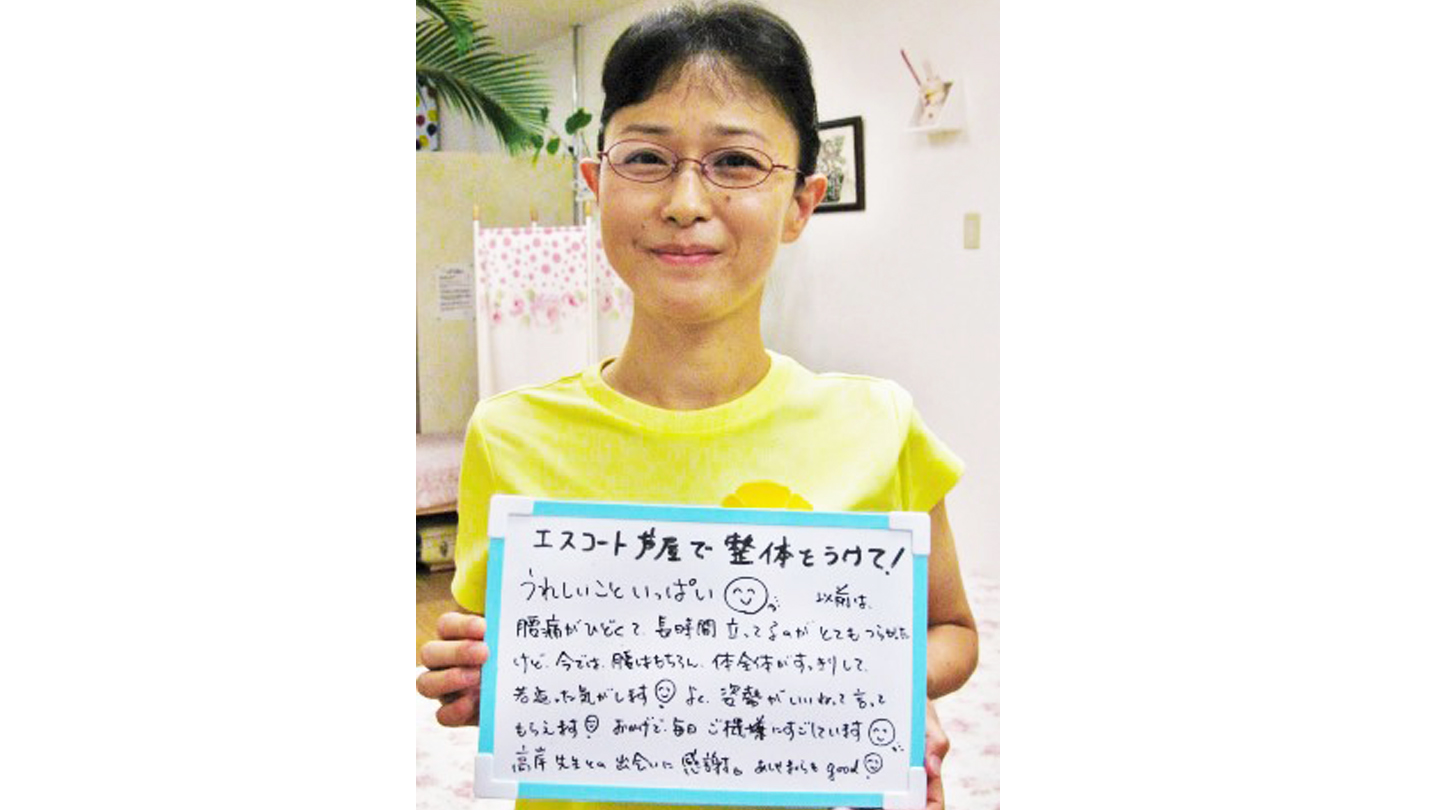 エスコート芦屋で整体をうけて!
うれしいこといっぱい 以前は、
腰痛がひどくて、長時間立ってるのがとてもつらかった
けど、今では、腰はもちろん、体全体がすっきりして、
若返った気がします! よく、姿勢がいいねって言って
もらえます! おかげで、毎日ご機嫌にすごしています
高岸先生との出会いに感謝。 good!